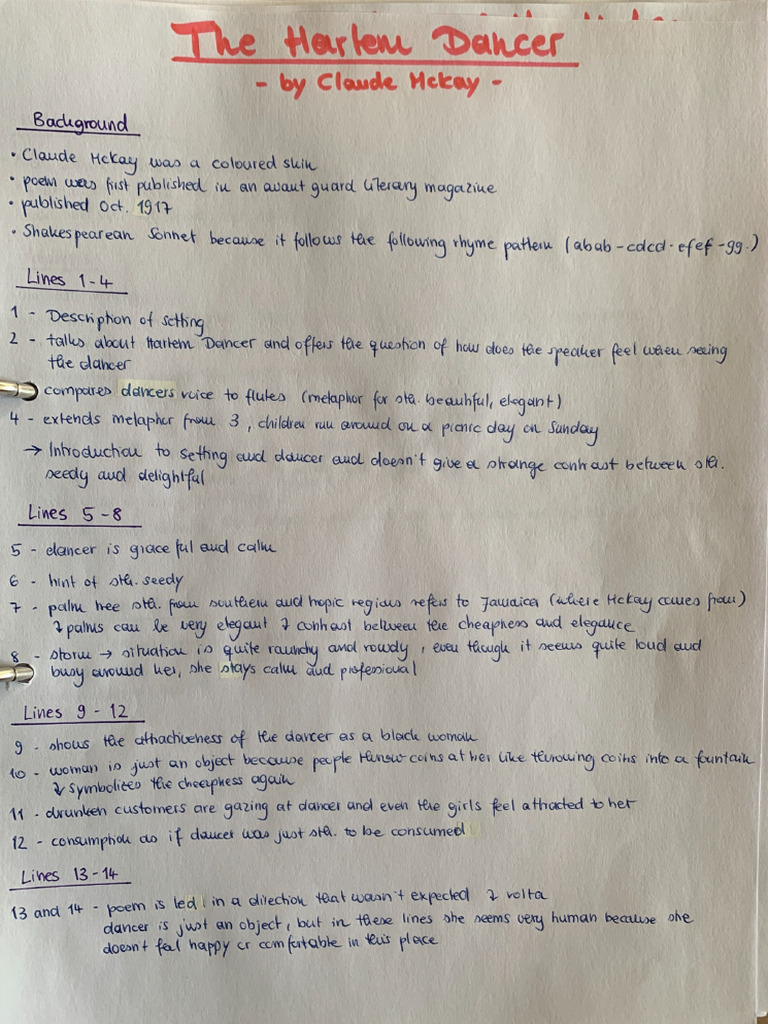 The Harlem Dancer
- by Claude McKay -
Background
• Claude McKay was a coloured skin
• poem was first published in an avant guard literary magazine
• published Oct. 1917
• Shakespearean Sonnet because it follows the following rhyme pattern (abab-cdcd-efef-gg.)
Lines 1-4
1 - Description of setting
2 - talks about Harlem Dancer and offers the question of how does the speaker feel when seeing
the dancer
compares dancers voice to flutes (metaphor for sth. beautiful, elegant)
4 - extends metaphor from 3, children run around on a picnic day on Sunday
→ Introduction to setting and dancer and doesn't give a strange contrast between sth.
seedy and delightful
Lines 5-8
5 - dancer is graceful and calm
6 - hint of sth. seedy
7 - palm tree sth. from southern and tropic regions refers to Jamaica (where McKay comes from)
↳ palms can be very elegant ↳ contrast between the cheapness and elegance
8 - storm → situation is quite raunchy and rowdy, even though it seems quite loud and
busy around her, she stays calm and professional
Lines 9-12
9 - shows the attractiveness of the dancer as a black woman
10 - woman is just an object because people throw coins at her like throwing coins into a fountain
↳ symbolizes the cheapness again
11 - drunken customers are gazing at dancer and even the girls feel attracted to her
12 - consumption as if dancer was just sth. to be consumed
Lines 13-14
13 and 14 - poem is led in a direction that wasn't expected ↳ volta
dancer is just an object, but in these lines she seems very human because she
doesn't feel happy or comfortable in this place